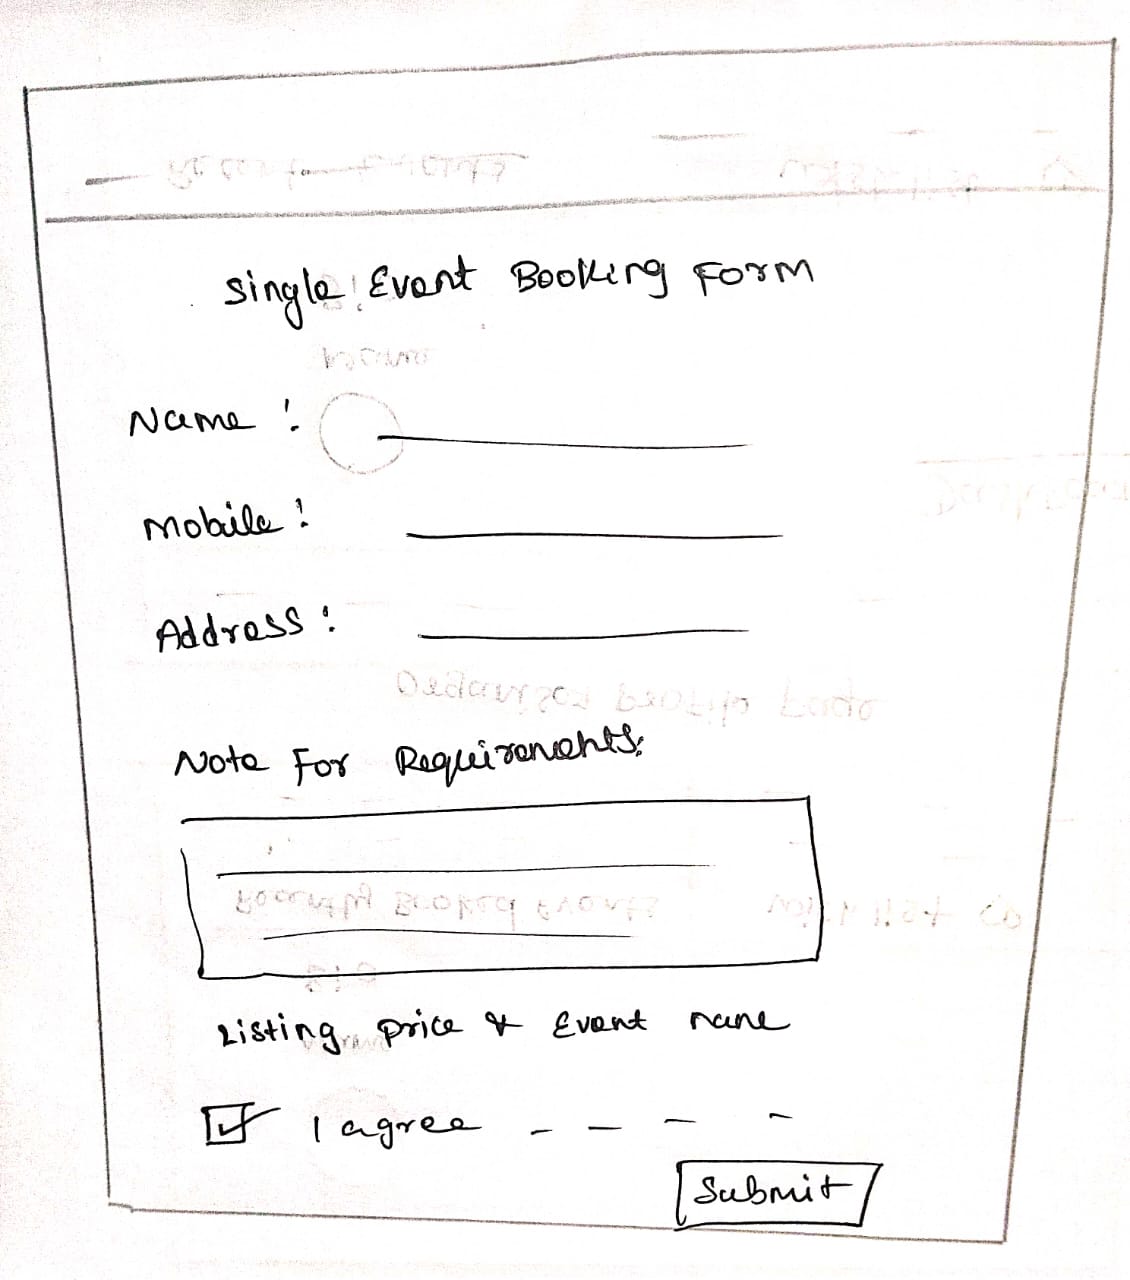 Single Event Booking Form
Name :
Mobile :
Address :
Note For Requirements:
Listing price & Event name
I agree - - - -
Submit